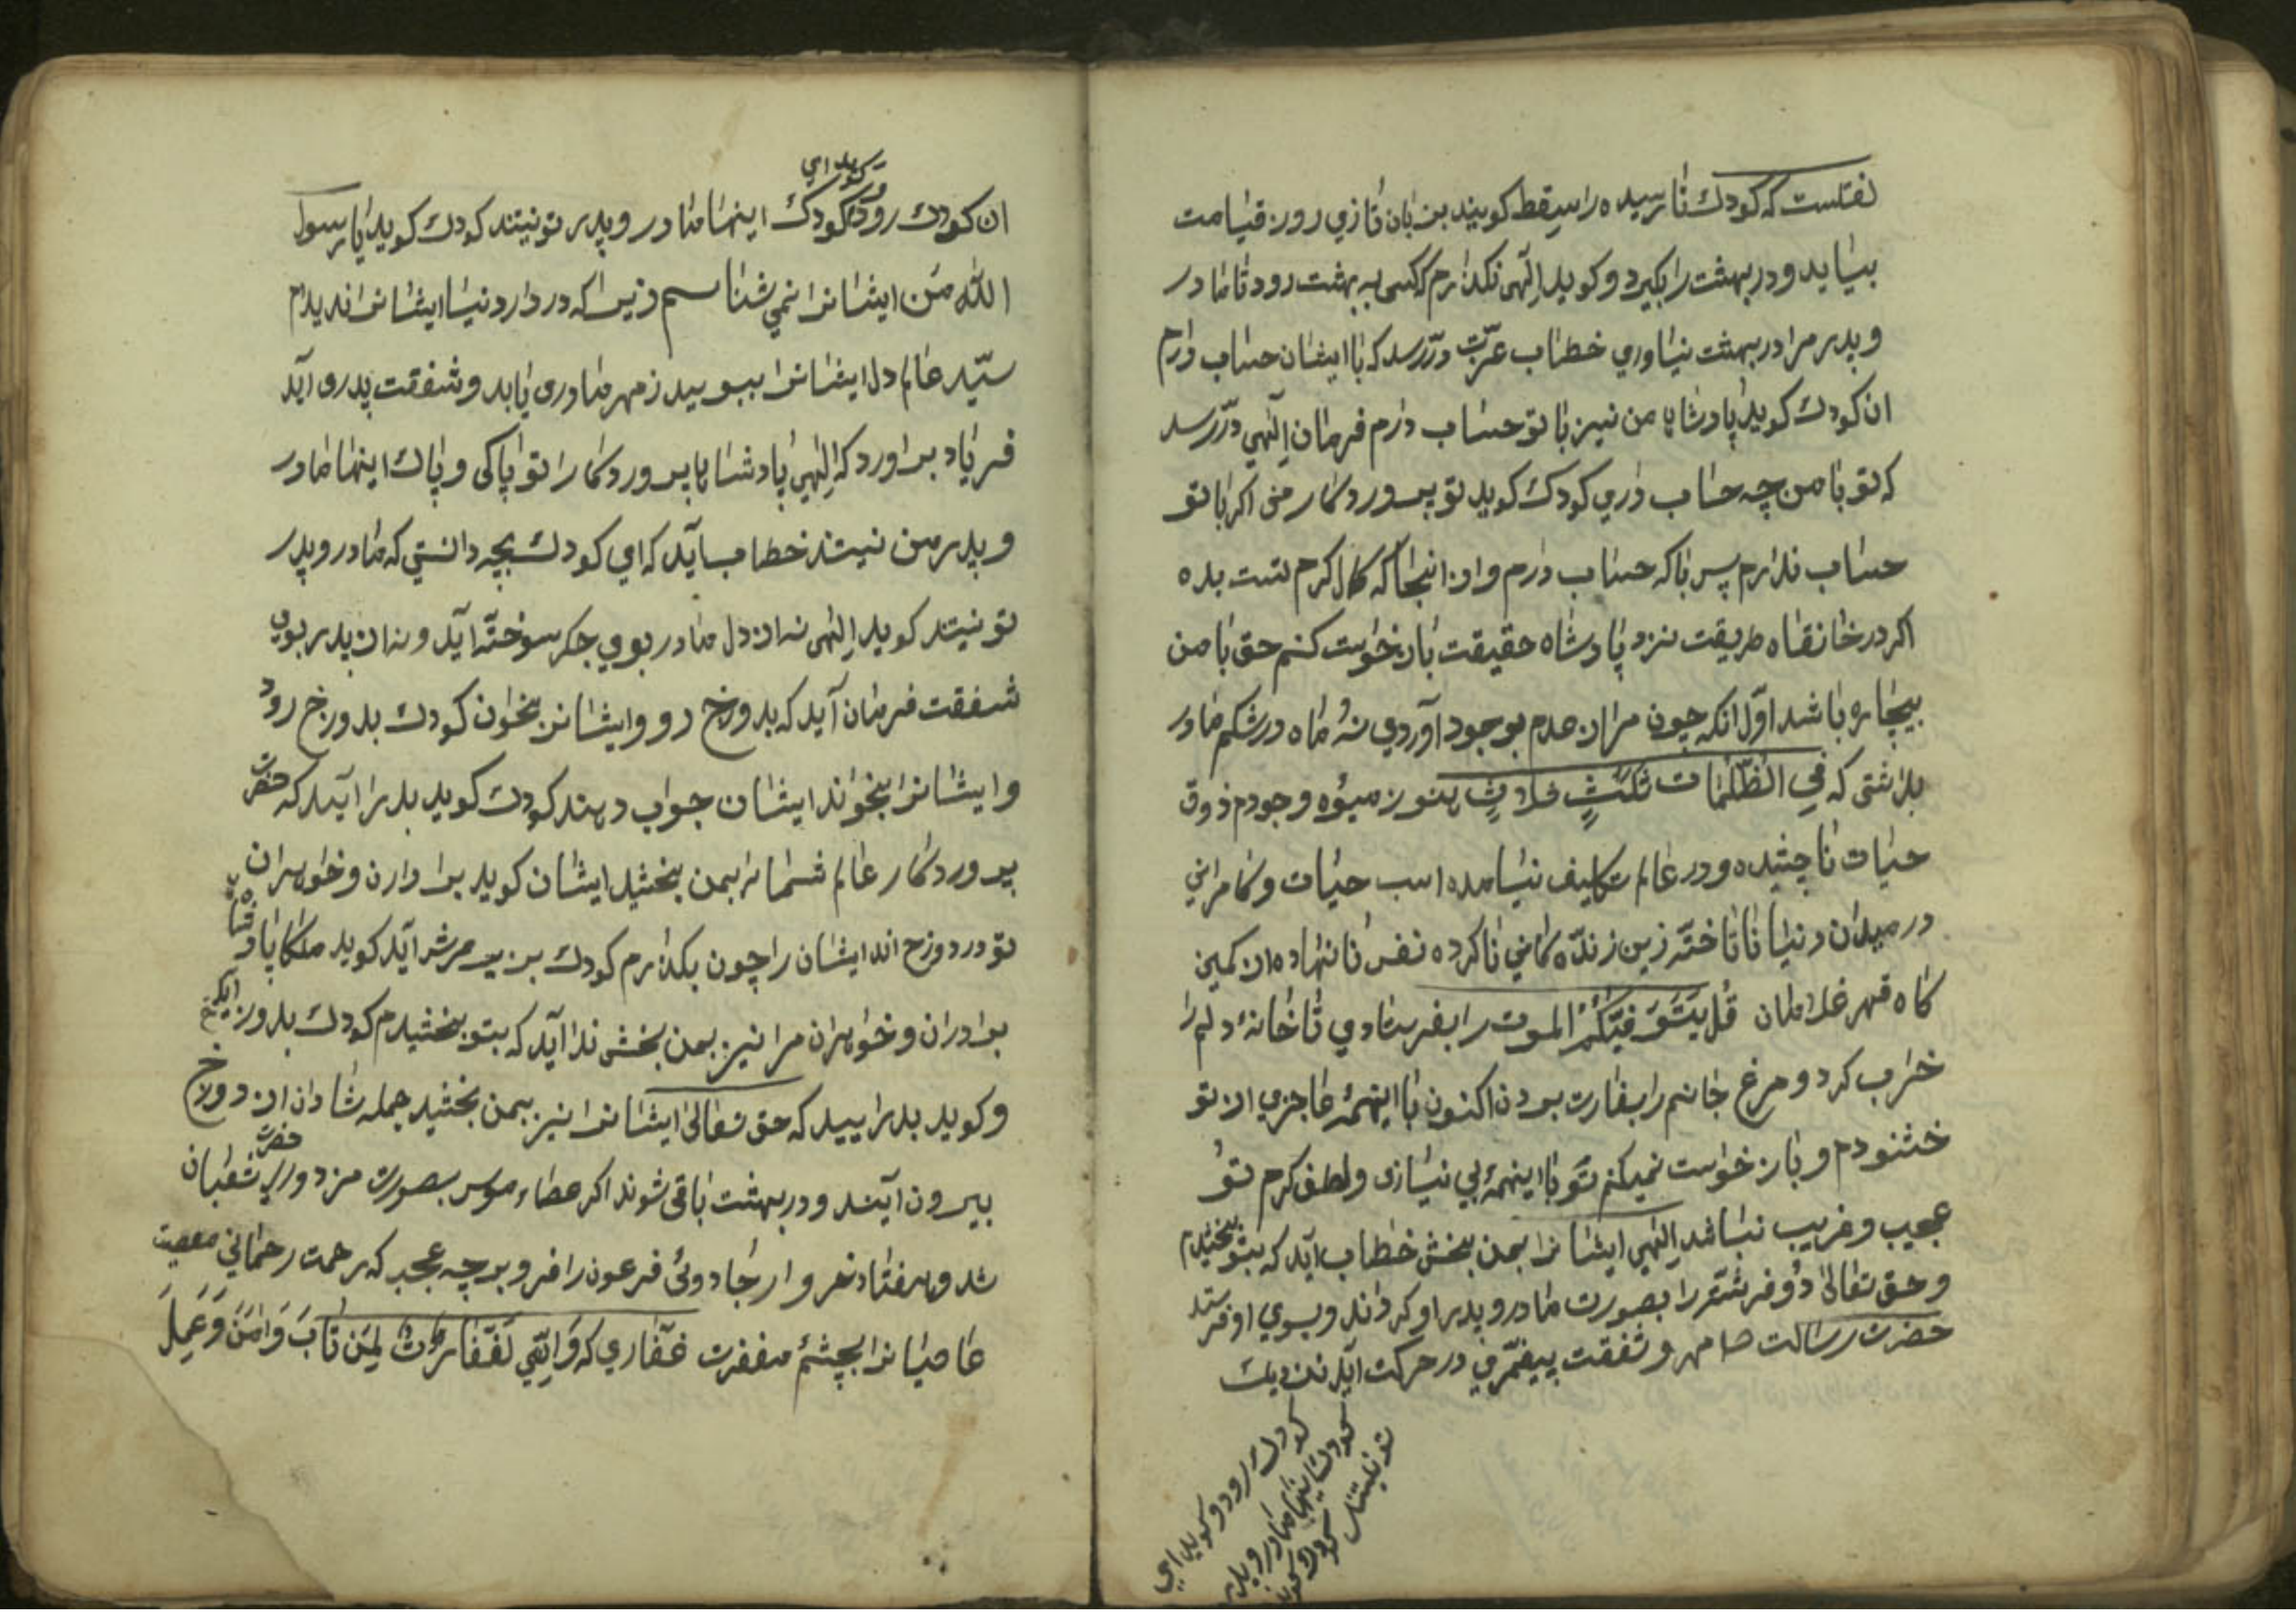 نقلست که کودک نارسیده را سقط کویند بزبان تازی روز قیامت
بیاید و در بهشت را بکیرد و کوید الهی نکذارم که کسی به بهشت رود تا مادر
و پدر مرا در بهشت نیاوری خطاب عزت در رسد که با ایشان حساب دارم
ان کودک کوید پادشاها من نیز با تو حساب دارم فرمان الهی در رسد
که تو با من چه حساب داری کودک کوید تو پروردکار منی اکر با تو
حساب ندارم پس با که حساب دارم و از انجا که کمال کرم تست بده
اکر در خانقاه طریقت نزد پادشاه حقیقت باز خواست کنم حق با من
بیچاره باشد اول انکه چون مرا از عدم بوجود آوردی نه ماه در شکم مادر
بداشتی که في الظلمات ثلث هنوز میوه وجودم ذوق
حیات ناچشیده و در عالم تکلیف نیامده اسب حیات و کامرانی
در میدان دنیا ناتاخته زین زنده کانی ناکرده نفس نانهاده از کمین
کاه قهر غلامان قل یتوفیکم الموت را بفرستادی تا خانه دلم را
خراب کرد و مرغ جانم را بغارت برد ن اکنون با اینهمه عاجزی از تو
خشنودم و باز خواست نمیکنم تو با اینهمه بی نیازی و لطف کرم تو
عجیب و غریب نباشد الهی ایشانرا بمن بخش خطاب آید که بتو بخشیدم
و حق تعالی دو فرشته را بصورت مادر و پدر او کرداند و بسوی او فرستد
حضرت رسالت را مهر و شفقت پیغمبری در حرکت آید نزدیک
کودک رود و کوید ای
کودک اینها مادر و پدر
تو نیستند کودک کوید
کوید ای
ان کودک رود کودک اینها مادر و پدر تو نیتند کودک کوید یا رسول
الله من ایشانرا نمی شناسم زیرا که در دار دنیا ایشانرا ندیدم
سید عالم دل ایشانرا ببوید ز مهر مادری یابد و شفقت پدری آید
فریاد براورد که الهی پادشاها پروردکارا تو پاکی و پاک اینها مادر
و پدر من نیتند خطاب آید که ای کودک بچه دانستی که مادر و پدر
تو نیتند کوید الهی نه از دل مادر بوی جکر سوخته آید و نه از پدر بوی
شفقت فرمان آید که بدوزخ رو و ایشانرا بخوان کودک بدوزخ رود
و ایشانرا بخواند ایشان جواب دهند کودک کوید بدر آیید که حضرت
پروردکار عالم شما را بمن بخشید ایشان کوید برادارن و خواهران
تو در دوزخ اند ایشان را چون بکذارم کودک بزیر عرش آید کوید ملکا پادشاها
برادران و خواهران مرا نیز بمن بخش ندا آید که بتو بخشیدم کودک بدوزخ آید
و کوید بدر ایید که حق تعالی ایشانرا نیز بمن بخشید جمله شادان از دوزخ
بیرون آیند و در بهشت باقی شوند اکر عصاء موسی بصورت مزدوری حضرت ثعبان
شد و هفتاد خروار جادوئی فرعون را فرو برد چه عجب که رحمت رحمانی معصیت
عاصیانرا بچشمه مغفرت غفاری که وَاِنِّي لَغَفَّارٌ لِمَنْ تَابَ وَاٰمَنَ وَعَمِلَ